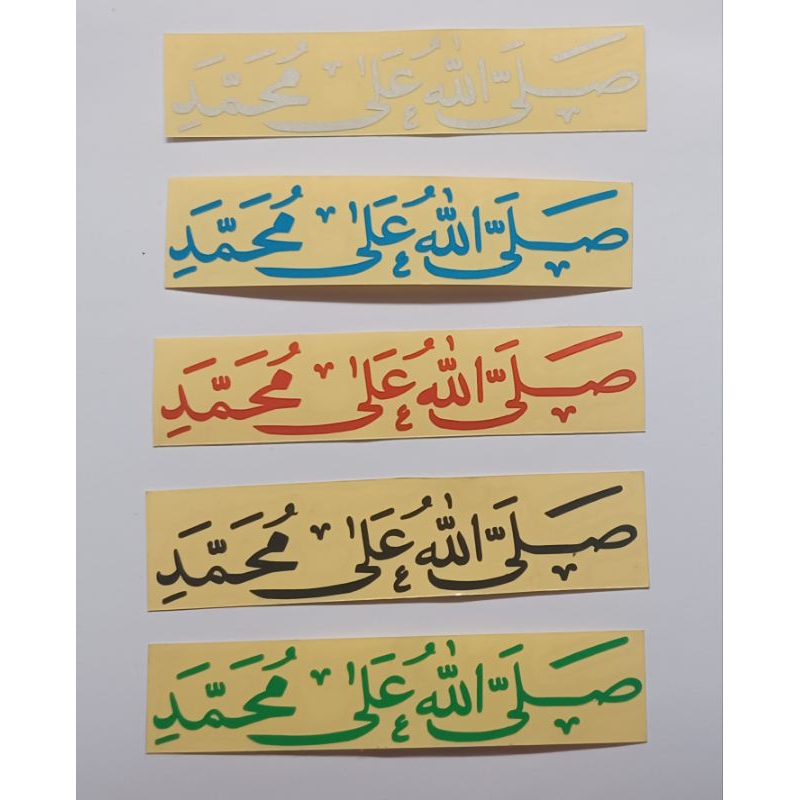 صَلَّى اللهُ عَلَىٰ مُحَمَّدِ
صَلَّى اللهُ عَلَىٰ مُحَمَّدِ
صَلَّى اللهُ عَلَىٰ مُحَمَّدِ
صَلَّى اللهُ عَلَىٰ مُحَمَّدِ
صَلَّى اللهُ عَلَىٰ مُحَمَّدِ